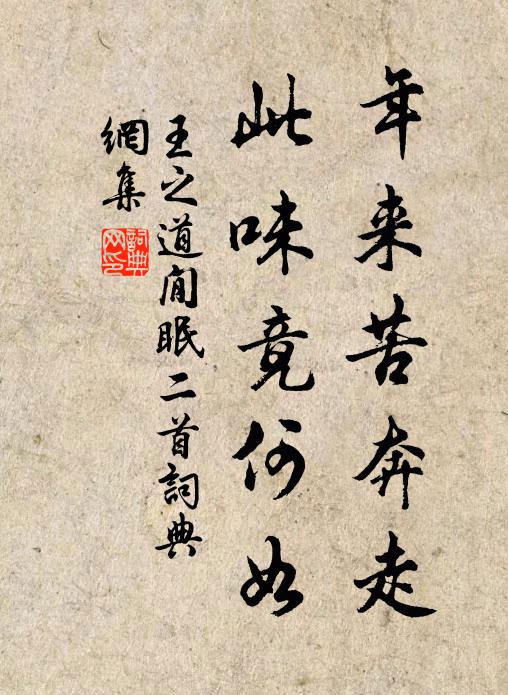 年来苦奔走
此味竟何如
王之道闲眠二首詞典
網集
詞典網印